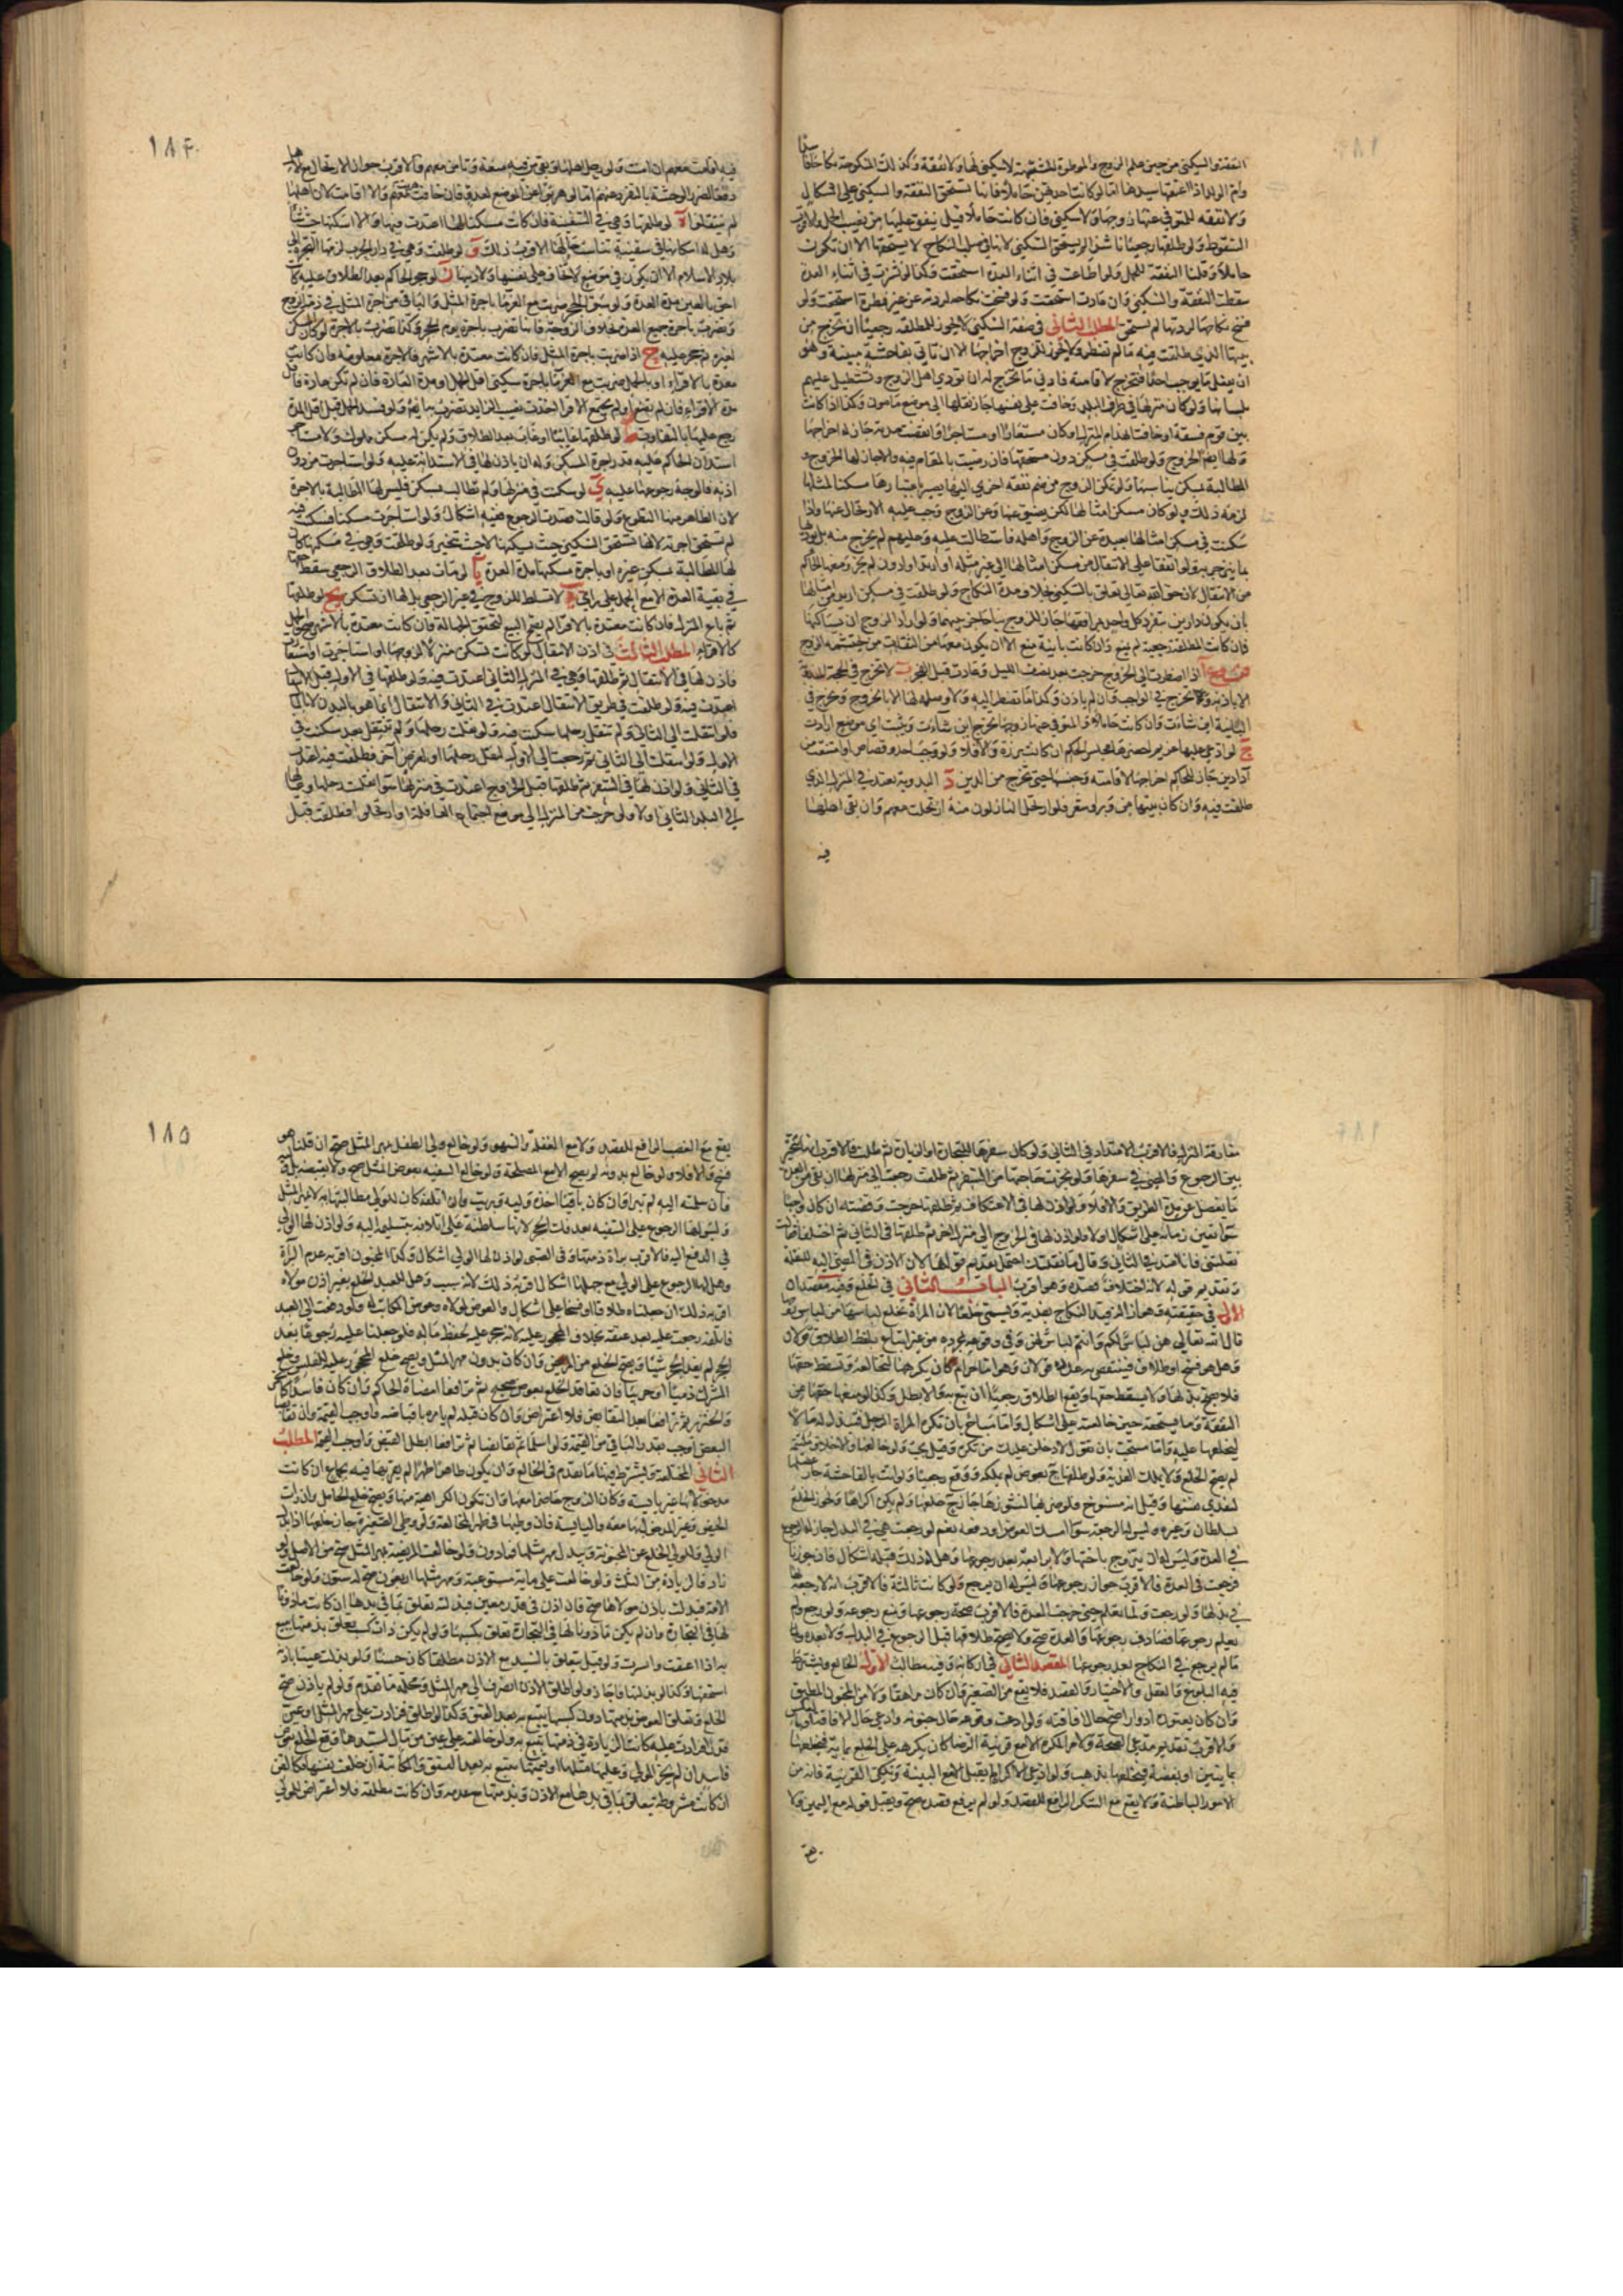 النفقة والسكنى من حين علم الزوج والموطوءة للشبهة لا سكنى لها ولا نفقة وكذلك المنكوحة نكاحا فاسدا
وام الولد اذا اعتقها سيدها اما لو كانت احديهن حاملا فانها تستحق النفقة والسكنى على اشكال
ولا نفقة للمتوفى عنها زوجها ولا سكنى فان كانت حاملا قيل ينفق عليها من نصيب الحمل والاقرب
السقوط ولو طلقها رجعيا ناشزا لم يستحق السكنى لانها في صلب النكاح لا يستحقها الا ان تكون
حاملا وقلنا النفقة للحمل ولو اطاعت في اثناء العدة استحقت وكذا لو نشزت في اثناء العدة
سقطت النفقة والسكنى وان عادت استحقت ولو فسخت نكاحه لردته عن غير فطرة استحقت ولو
فسخ نكاحها لردتها لم تستحق المطلب الثاني في صفة السكنى لا يجوز للمطلقة رجعيا ان تخرج من
بيتها الذي طلقت فيه ما لم تضطر ولا يجوز للزوج اخراجها الا ان تاتي بفاحشة مبينة وهو
ان يفعل ما يوجب حدا فتخرج لاقامته فادنى ما تخرج له ان تؤذي اهل الزوج وتستطيل عليهم
بلسانها ولو كان منزلها في طرف البلد وخافت على نفسها جاز نقلها الى موضع مامون وكذا اذا كانت
بين قوم فسقة او خافت انهدام المنزل او كان مستعارا او مستاجرا وانقضت مدته جاز له اخراجها
ولها ايضا الخروج ولو طلقت في مسكن دون مستحقها فان رضيت بالمقام فيه والا جاز لها الخروج و
المطالبة بمسكن يناسبها
لزمه ذلك ولو كان مسكن امثالها لكن يضيق عنها وعن الزوج وجب عليه الارتحال عنها واذا
سكنت في مسكن امثالها بعيدة عن الزوج واهله فاستطالت عليه وعليهم لم تخرج منه بل يؤدبها
بما ينزجر به ولو اتفقا على الانتقال من مسكن امثالها الى غير مثله او ازيد او ادون لم يجز ومنعها الحاكم
من الانتقال لان حق الله تعالى تعلق بالسكنى بخلاف مدة النكاح ولو طلقت في مسكن ازيد من امثالها
بان يكون دارين تنفرد كل واحدة بمرافقها جاز للزوج بناء حاجز بينهما ولو اراد الزوج ان يساكنها
فان كانت المطلقة رجعية لم يمنع وان كانت باينة منع الا ان يكون معها من الثقات من يحتشمه الزوج
فروع ا اذا اضطرت الى الخروج خرجت بعد نصف الليل وعادت قبل الفجر ب لا تخرج في الحجة المندوبة
الا باذنه وتخرج في الواجب وان لم ياذن وكذا فيما تضطر اليه ولا وصلة لها الا بالخروج وتخرج في
الباينة اين شاءت وان كانت حاملا والمتوفى عنها زوجها تخرج اين شاءت وتبيت اي موضع ارادت
ج لو ادعى عليها غريم احضرها مجلس الحكم ان كانت برزة والا فلا ولو وجب حد وقصاص او امتنعت من
اداء دين جاز للحاكم اخراجها لاقامته وحبسها حتى تخرج من الدين د البدوية تعتد في المنزل الذي
طلقت فيه وان كان بيتها من وبر او شعر فلو ارتحل النازلون منه ارتحلت معهم وان بقي اهلها
فيه
١٨٤
فيه اقامت معهم ان امنت ولو رحل اهلها وبقي من فيه منعة وتامن معهم فالاقرب جواز الارتحال مع الاهل
دفعا لضرر الوحشة بالتفرد عنهم اما لو هربوا عن الموضع لعدو فان خافت هربت معهم والا اقامت لان اهلها
لم ينتقلوا ه لو طلقها وهي في السفينة فان كانت مسكنا لها اعتدت فيها والا اسكنها حيث شاء
وهل له اسكانها في سفينة تناسب حالها الاقرب ذلك و لو طلقت وهي في دار الحرب لزمها الهجرة الى
بلاد الاسلام الا ان يكون في موضع لا تخاف على نفسها ولا دينها ز لو حجر الحاكم بعد الطلاق عليه كانت
احق بالعين مدة العدة ولو سبق الحجر ضربت مع الغرماء باجرة المثل والباقي من اجرة المثل في ذمة الزوج
وتضرب باجرة جميع العدة بخلاف الزوجة فانها تضرب باجرة يوم الحجر وكذا تضرب بالاجرة لو كان المسكن
لغيره ثم حجر عليه ح اذا ضربت باجرة المثل فان كانت معتدة بالاشهر فالاجرة معلومة وان كانت
معتدة بالاقراء او بالحمل ضربت مع الغرماء باجرة سكنى اقل الحمل او مدة العادة فان لم تكن عادة فاقل
مدة الاقراء فان لم تضع او لم يجتمع الاقراء اخذت نصيب الزايد تضرب به ايضا ولو فسد الحمل قبل اقل المدة
رجع عليها بالتفاوت ط لو طلقها غايبا او غاب بعد الطلاق ولم يكن له مسكن مملوك ولا مستاجر
استدان الحاكم عليه قدر اجرة المسكن وله ان ياذن لها في الاستدانة عليه ولو استاجرت من دون
اذنه فالوجه رجوعها عليه ي لو سكنت في منزلها ولم تطالب بمسكن فليس لها المطالبة بالاجرة
لان الظاهر منها التطوع ولو قالت قصدت الرجوع ففيه اشكال ولو استاجرت مسكنا فسكنت فيه
لم تستحق اجرته لانها تستحق السكنى حيث يسكنها لا حيث تتخير ولو طلقت وهي في مسكنها كان
لها المطالبة بمسكن غيره او باجرة مسكنها مدة العدة يا لو مات بعد الطلاق الرجعي سقط حقها
في بقية العدة الا مع الحمل على راي يب لا تسلط للزوج في غير الرجعي بل لها ان تسكن يج لو طلقها
ثم باع المنزل فان كانت معتدة بالاقراء لم يصح البيع لتحقق الجهالة وان كانت معتدة بالاشهر صح والحمل
كالاقراء المطلب الثالث في اذن الانتقال لو كانت تسكن منزلا لزوجها او استاجره او استعاره
فاذن لها في الانتقال ثم طلقها وهي في المنزل الثاني اعتدت فيه ولو طلقها في الاول قبل الانتقال
اعتدت فيه ولو طلقت في طريق الانتقال اعتدت في الثاني والانتقال انما هو بالبدن لا بالمال
فلو انتقلت الى الثاني ولم تنقل رحلها سكنت فيه ولو نقلت رحلها ولم تنتقل بعد سكنت في
الاول ولو انتقلت الى الثاني ثم رجعت الى الاول لنقل رحلها او لغرض آخر فطلقت فيه اعتدت
في الثاني ولو اذن لها في السفر ثم طلقها قبل الخروج اعتدت في منزلها سواء نقلت رحلها وعيالها
الى البلد الثاني او لا ولو خرجت من المنزل الى موضع اجتماع القافلة او ارتحلوا فطلقت قبل
مفارقة المنزل فالاقرب الاعتداد في الثاني ولو كان سفرها للتجارة او الزيارة ثم طلقت فالاقرب انها تتخير
بين الرجوع والمضي في سفرها ولو نجزت حاجتها من السفر ثم طلقت رجعت الى منزلها ان بقي من العدة
ما يفضل عن مدة الطريق والا فلا ولو اذن لها في الاعتكاف ثم طلقها خرجت وقضته ان كان واجبا
سواء تعين زمانه على اشكال او لا ولو اذن لها في الخروج الى منزل اخر ثم طلقها في الثاني ثم اختلفا فقالت
نقلتني فانا اعتد في الثاني وقال ما نقلتك احتمل تقديم قولها لان الاذن في المضي اليه للنقلة
وتقديم قوله لانه اختلاف في قصده وهو اقرب الباب الثاني في الخلع وفيه مقصدان
الاول في حقيقته وهو ازالة قيد النكاح بفدية ويسمى خلعا لان المراة تخلع لباسها من لباس زوجها
قال الله تعالى هن لباس لكم وانتم لباس لهن وفي وقوعه بمجرده من غير اتباع بلفظ الطلاق قولان
وهل هو فسخ او طلاق فينتقص به عدده قولان وهو اما حرام كان يكرهها لتخالعه وتسقط حقها
فلا يصح بذلها ولا يسقط حقها ويقع الطلاق رجعيا ان تبع به والا بطل وكذا لو منعها حقها من
النفقة وما يستحقه حتى خالعته على اشكال واما مباح بان تكره المراة الرجل فتبذل له مالا
ليخلعها عليه واما مستحب بان تقول لادخلن عليك من تكره وقيل يجب ولو خالعها والاخلاق ملتئمة
لم يصح الخلع ولا يملك الفدية ولو طلقها ح بعوض لم يملكه ووقع رجعيا ولو اتت بالفاحشة جاز عضلها
لتفدي نفسها وقيل انه منسوخ
وليس له الرجعة سواء امسك العوض او دفعه نعم لو رجعت هي في البذل جاز له الرجوع
في العدة وليس له ان يتزوج باختها ولا برابعة بعد رجوعها وهل له ذلك قبله اشكال فان جوزنا
فرجعت في العدة فالاقرب جواز رجوعها وليس له ان يرجع ولو كانت ثالثة فالاقرب انه لا رجعة لها
في بذلها ولو رجعت ولما يعلم حتى خرجت العدة فالاقرب صحة رجوعها ومنع رجوعه ولو رجع ولم
يعلم رجوعها فصادف رجوعها والعدة صح ولا يصح طلاقها قبل الرجوع في البذل ولا بعده
ما لم يرجع في النكاح بعد رجوعها المقصد الثاني في اركانه وفيه مطالب الاول الخالع ويشترط
فيه البلوغ والعقل والاختيار والقصد فلا يقع من الصغير وان كان مراهقا ولا من المجنون المطبق
وان كان يعتوره ادوارا صح حال افاقته ولو ادعت وقوعه حال جنونه وادعى حال الافاقة او بالعكس
فالاقرب تقديم مدعي الصحة ولا من المكره الا مع قرينة الرضا كان يكرهه على الخلع بماية فيخلعها
بمايتين او بفضة فيخلعها بذهب ولو ادعى الاكراه لم يقبل الا مع البينة وتكفي القرينة فانه من
الامور الباطنة ولا يقع مع السكر الرافع للقصد ولو لم يرفع قصده صح ويقبل قوله مع اليمين ولا
يقع
١٨٥
يقع مع الغضب الرافع للقصد ولا مع الغفلة والسهو ولو خالع ولي الطفل بمهر المثل صح ان قلنا هو
فسخ والا فلا ولو خالع بدونه لم يصح الا مع المصلحة ولو خالع السفيه بعوض المثل صح ولا يقبضه بل وليه
فان سلمته اليه لم تبرا فان كان باقيا اخذه وليه وبريت وان اتلفه كان للولي مطالبتها به لا بمهر المثل
وليس لها الرجوع على السفيه بعد فك الحجر لانها سلطته على اتلافه بتسليمه اليه ولو اذن لها الولي
في الدفع اليه فالاقرب براة ذمتها وفي الصبي لو اذن لها الولي اشكال وكذا المجنون اقربه عدم البراة
وهل لها الرجوع على الولي مع جهلها اشكال اقربه ذلك لانه سبب وهل للعبد الخلع بغير اذن مولاه
اقربه ذلك ان جعلناه طلاقا او فسخا على اشكال والعوض لمولاه وعوض المكاتب له ولو دفعت الى العبد
فاتلفه رجعت عليه بعد عتقه بخلاف المحجور عليه لانه حجر عليه لحفظ ماله فلو جعلنا عليه رجوعا بعد
الحجر لم يفد الحجر شيئا ويصح الخلع من المريض وان كان بدون مهر المثل ويصح خلع المحجور عليه للفلس وخلع
المشرك ذميا او حربيا فان تعاقدا الخلع بعوض صحيح ثم ترافعا امضاه الحاكم وان كان فاسدا كالخمر
والخنزير ثم ترافعا بعد التقابض فلا اعتراض وان كان قبله لم يامره باقباضه واوجب القيمة وان تقابضا
البعض اوجب بقدر الباقي من القيمة ولو اسلما ثم تقابضا ثم ترافعا ابطل القبض واوجب القيمة المطلب
الثاني المختلعة ويشترط فيها ما تقدم في الخالع وان يكون طاهرا طهرا لم يقربها فيه بجماع ان كانت
مدخولا بها غير يايسة وكان الزوج حاضرا معها وان تكون الكراهية منها ويصح خلع الحامل وان رات
الحيض وغير المدخول بها معه واليايسة وان وطئها في طهر المخالعة ولو وطي الصغيرة جاز خلعها اذا بذل
الولي وللولي الخلع عن المجنونة ويبذل مهر مثلها فما دون ولو خالعت المريضة بمهر المثل صح من الاصل ولو
زاد فالزيادة من الثلث ولو خالعت على ماية مستوعبة ومهر مثلها اربعون صح له ستون ولو خالعت
الامة فبذلت باذن مولاها صح فان اذن في قدر معين فبذلته تعلق بما في يدها ان كانت ماذونا
لها في التجارة وان لم يكن ماذونا لها في التجارة تعلق بكسبها ولو لم يكن ذات كسب تعلق بذمتها يتبع
به اذا اعتقت وايسرت ولو قيل يتعلق بالسيد مع الاذن مطلقا كان حسنا ولو بذلت عينا باذنه
استحقها وكذا لو بذلتها فاجاز ولو اطلق الاذن انصرف الى مهر المثل ومحله ما تقدم ولو لم ياذن صح
الخلع وتعلق العوض بذمتها دون كسبها يتبع به بعد العتق وكذا لو اطلق فزادت على مهر المثل او عين
قدرا فزادت عليه كانت الزيادة في ذمتها تتبع به ولو خالعته على عين من مال السيد
فاسد ان لم يجز المولى وعليها مثلها او قيمتها تتبع به بعد العتق والمكاتبة ان خلعت نفسها فكالقن
ان كانت مشروطة تعلق بما في يدها مع الاذن وبذمتها مع عدمه وان كانت مطلقة فلا اعتراض للمولى